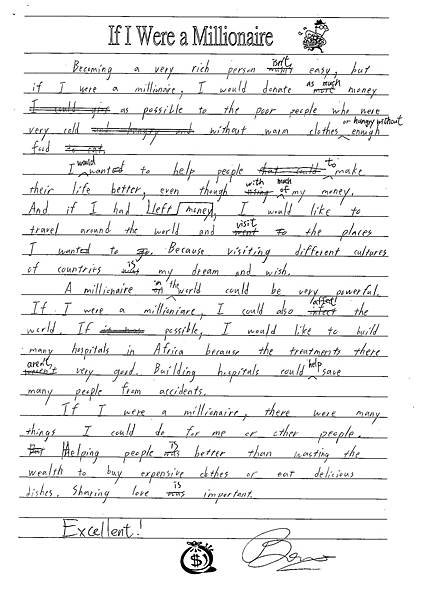 If I Were a Millionaire
Becoming a very rich person isn't easy, but
if I were a millionaire, I would donate as much money
I could give as possible to the poor people who were
very cold and hungry and without warm clothes or hungry without enough
food to eat.
I would wanted to help people that could to make
their life better, even though using with much of my money.
And if I had left money, I would like to
travel around the world and went visit to the places
I wanted to go. Because visiting different cultures
of countries was is my dream and wish.
A millionaire on in the world could be very powerful.
If I were a millioniare, I could also infect affect! the
world. If possible, I would like to build
many hospitals in Africa because the treatments there
weren't aren't very good. Building hospitals could help save
many people from accidents.
If I were a millionaire, there were many
things I could do for me or other people.
But Helping people was is better than wasting the
wealth to buy expensive clothes or eat delicious
dishes. Sharing love was is important.
Excellent!
$